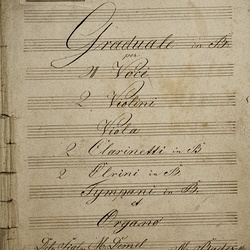 Graduale in B.
per
4 Voce
2 Violini
Viola
2 Clarinetti in B
2 Clrini in B.
Tympani in B.
et
Organo